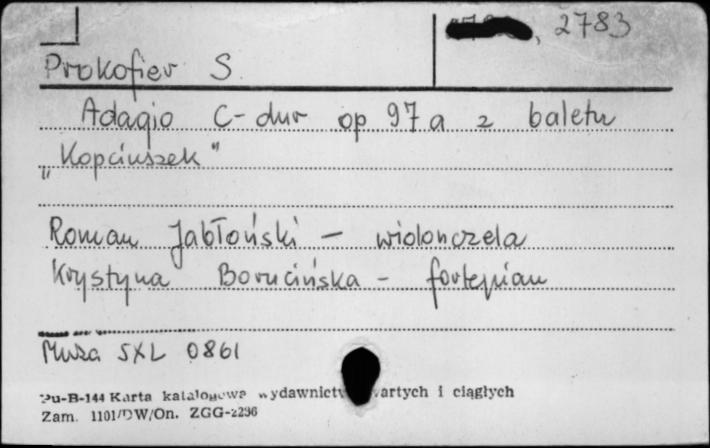 , 2783
Prokofiev S.
Adagio C-dur op 97a z baletu
„Kopciuszek"
Roman Jabłoński – wiolonczela
Krystyna Borucińska - fortepian
Muza SXL 0861
Pu-B-144 Karta katalogowa wydawnictw zwartych i ciągłych
Zam. 1101/DW/On. ZGG-2296